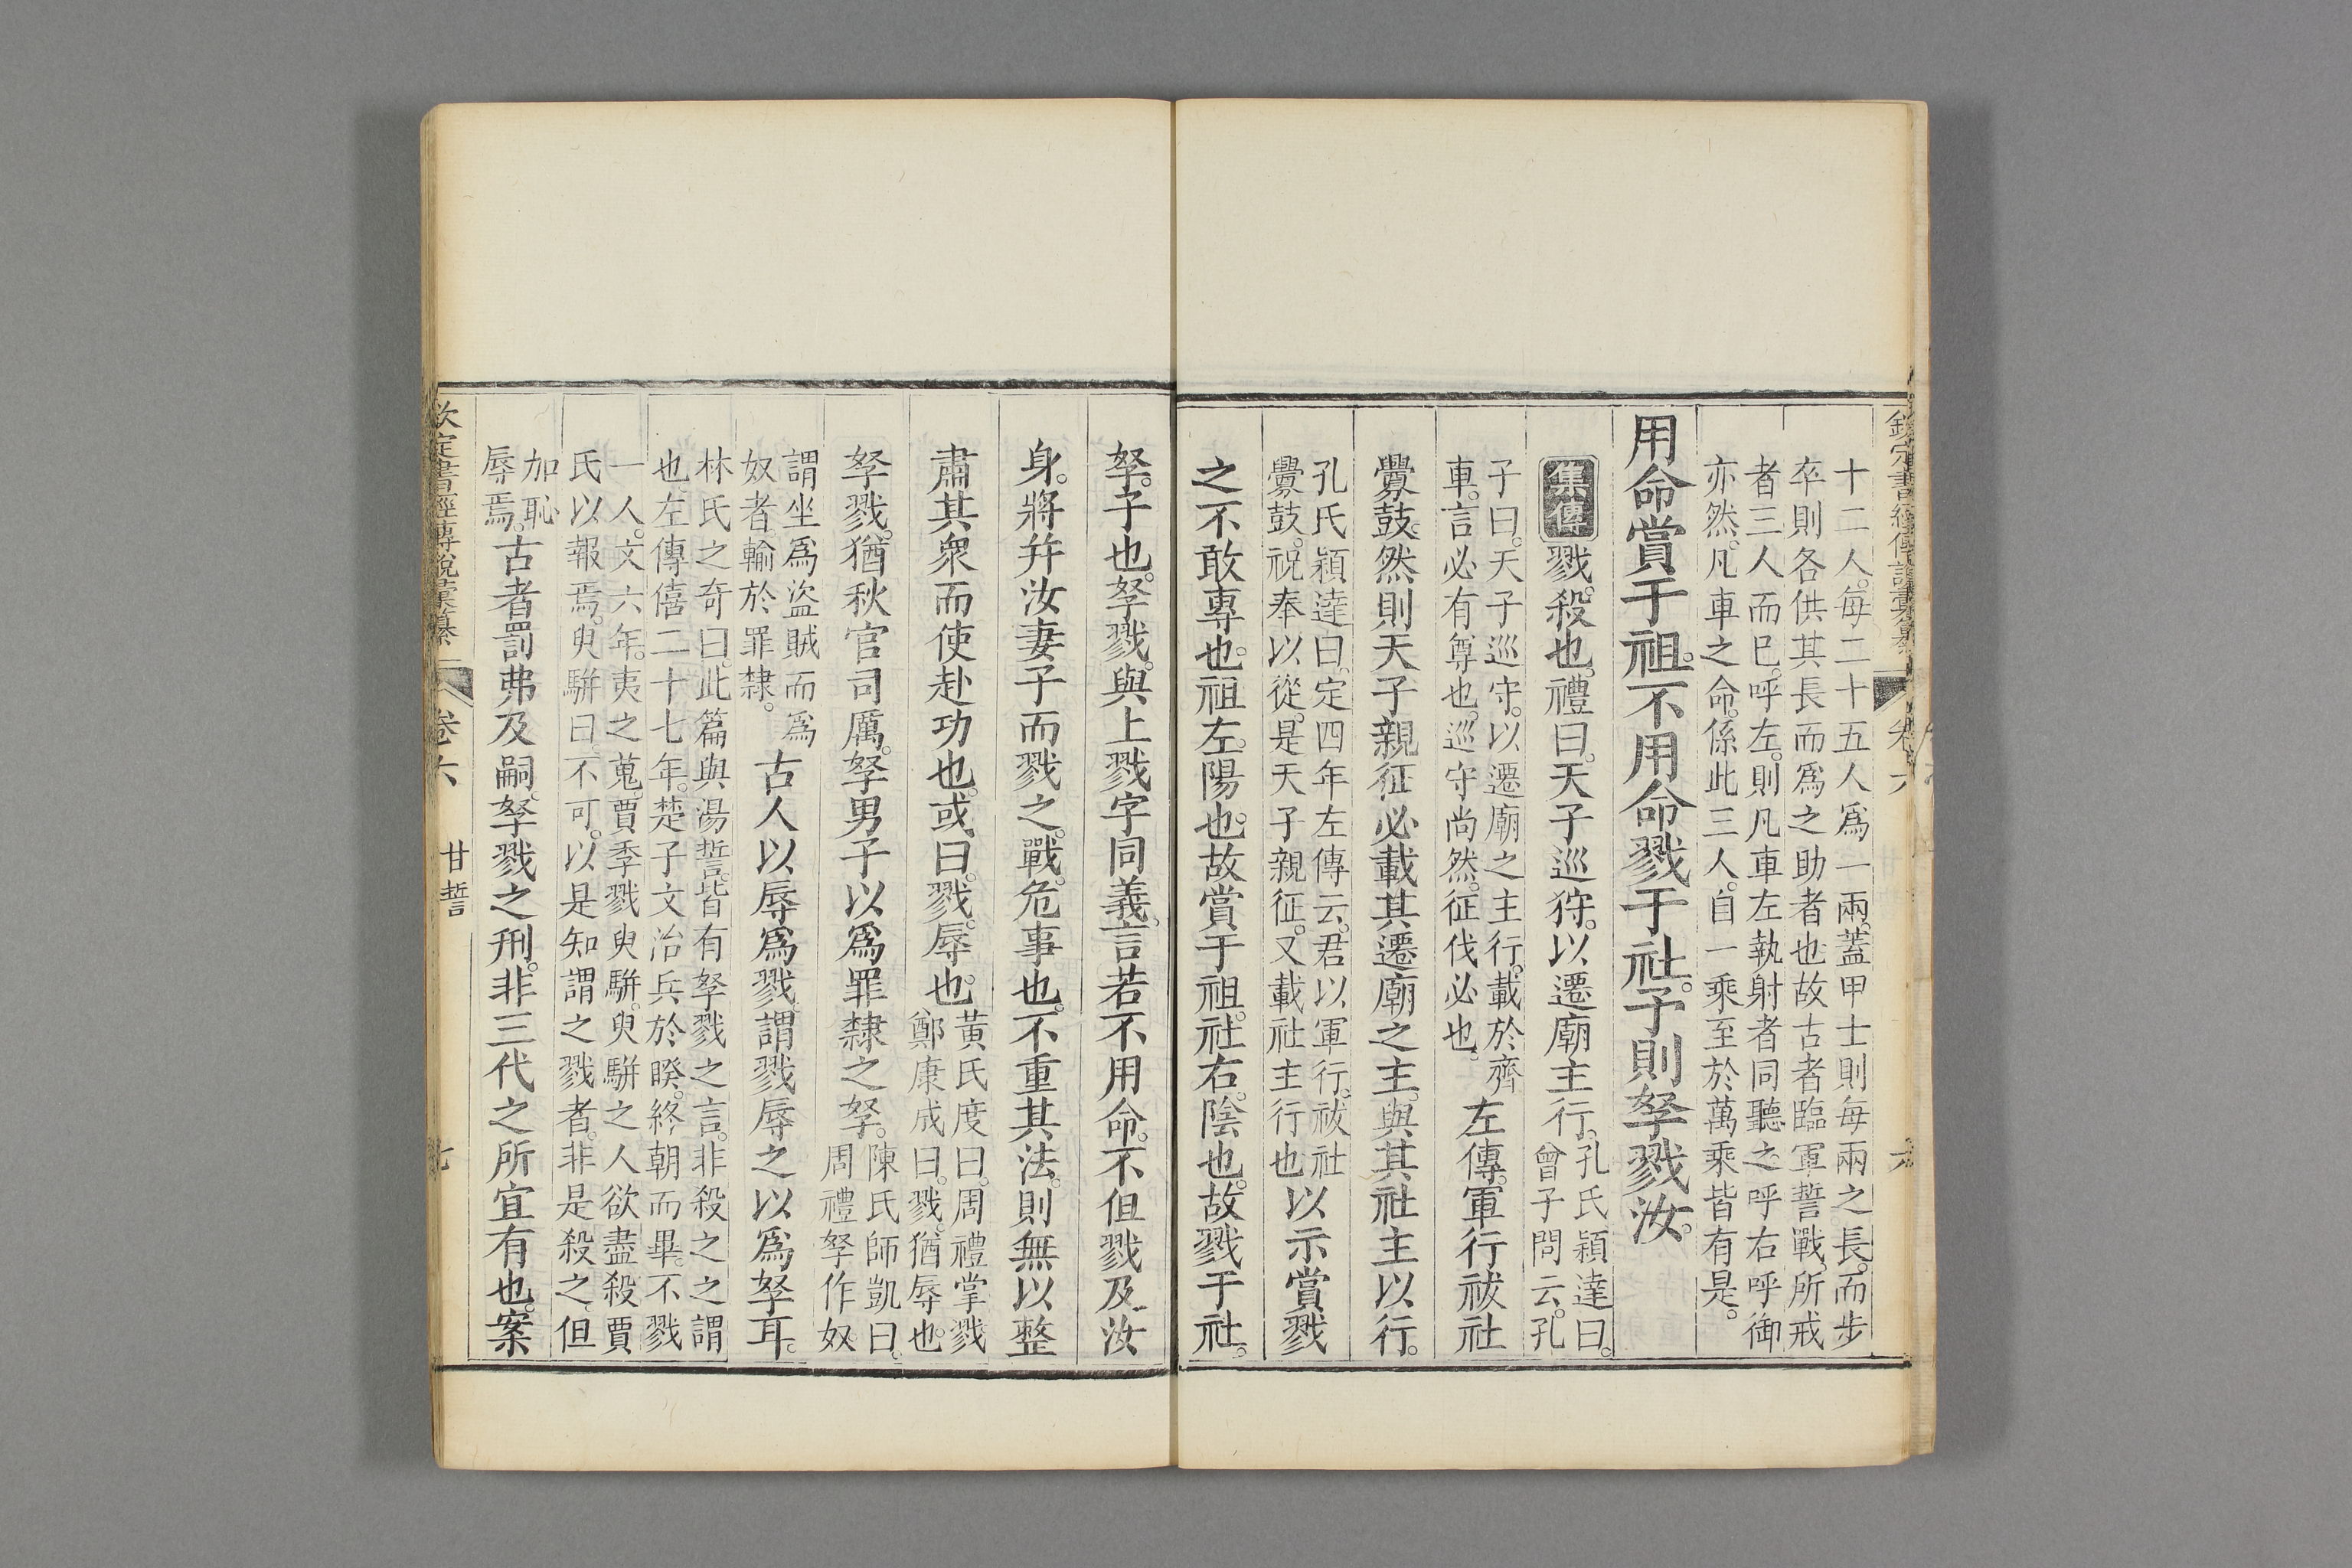 欽定書經傳說彙纂 卷六 六
十二人。每二十五人爲一兩。蓋甲士則每兩之長。而步
卒則各供其長而爲之助者也故古者臨軍誓戰。所戒
者三人而巳。呼左。則凡車左執射者同聽之呼右呼御
亦然。凡車之命。係此三人。自一乘至於萬乘皆有是。
用命賞于祖。不用命戮于社。予則孥戮汝。
集傳
戮。殺也。禮曰。天子巡狩。以遷廟主行。
孔氏穎達曰。
曾子問云。孔
子曰。天子巡守。以遷廟之主行。載於齊
車。言必有尊也。巡守尚然。征伐必也。
左傳。軍行祓社
釁鼓。然則天子親征必載其遷廟之主。與其社主以行。
孔氏穎達曰。定四年左傳云。君以軍行。祓社
釁鼓。祝奉以從。是天子親征。又載社主行也
以示賞戮
之不敢專也。祖左。陽也。故賞于祖。社右。陰也。故戮于社。
孥。子也。孥戮。與上戮字同義。言若不用命。不但戮及汝
身。將幷汝妻子而戮之。戰。危事也。不重其法。則無以整
肅其衆而使赴功也。或曰。戮。辱也。
黃氏度曰。周禮掌戮
鄭康成曰。戮。猶辱也。
孥戮。猶秋官司厲。孥男子以爲罪隸之孥。
陳氏師凱曰。
周禮孥作奴
謂坐爲盜賊而爲
奴者。輸於罪隸。
古人以辱爲戮。謂戮辱之以爲孥耳。
林氏之奇曰。此篇與湯誓。皆有孥戮之言。非殺之之謂
也左傳僖二十七年。楚子文治兵於睽。終朝而畢。不戮
一人。文六年。夷之蒐。賈季戮臾騈。臾騈之人欲盡殺賈
氏以報焉。臾騈曰。不可。以是知謂之戮者。非是殺之。但
加恥
辱焉。
古者罰弗及嗣。孥戮之刑。非三代之所宜有也。案
欽定書經傳說彙纂 卷六 甘誓 七